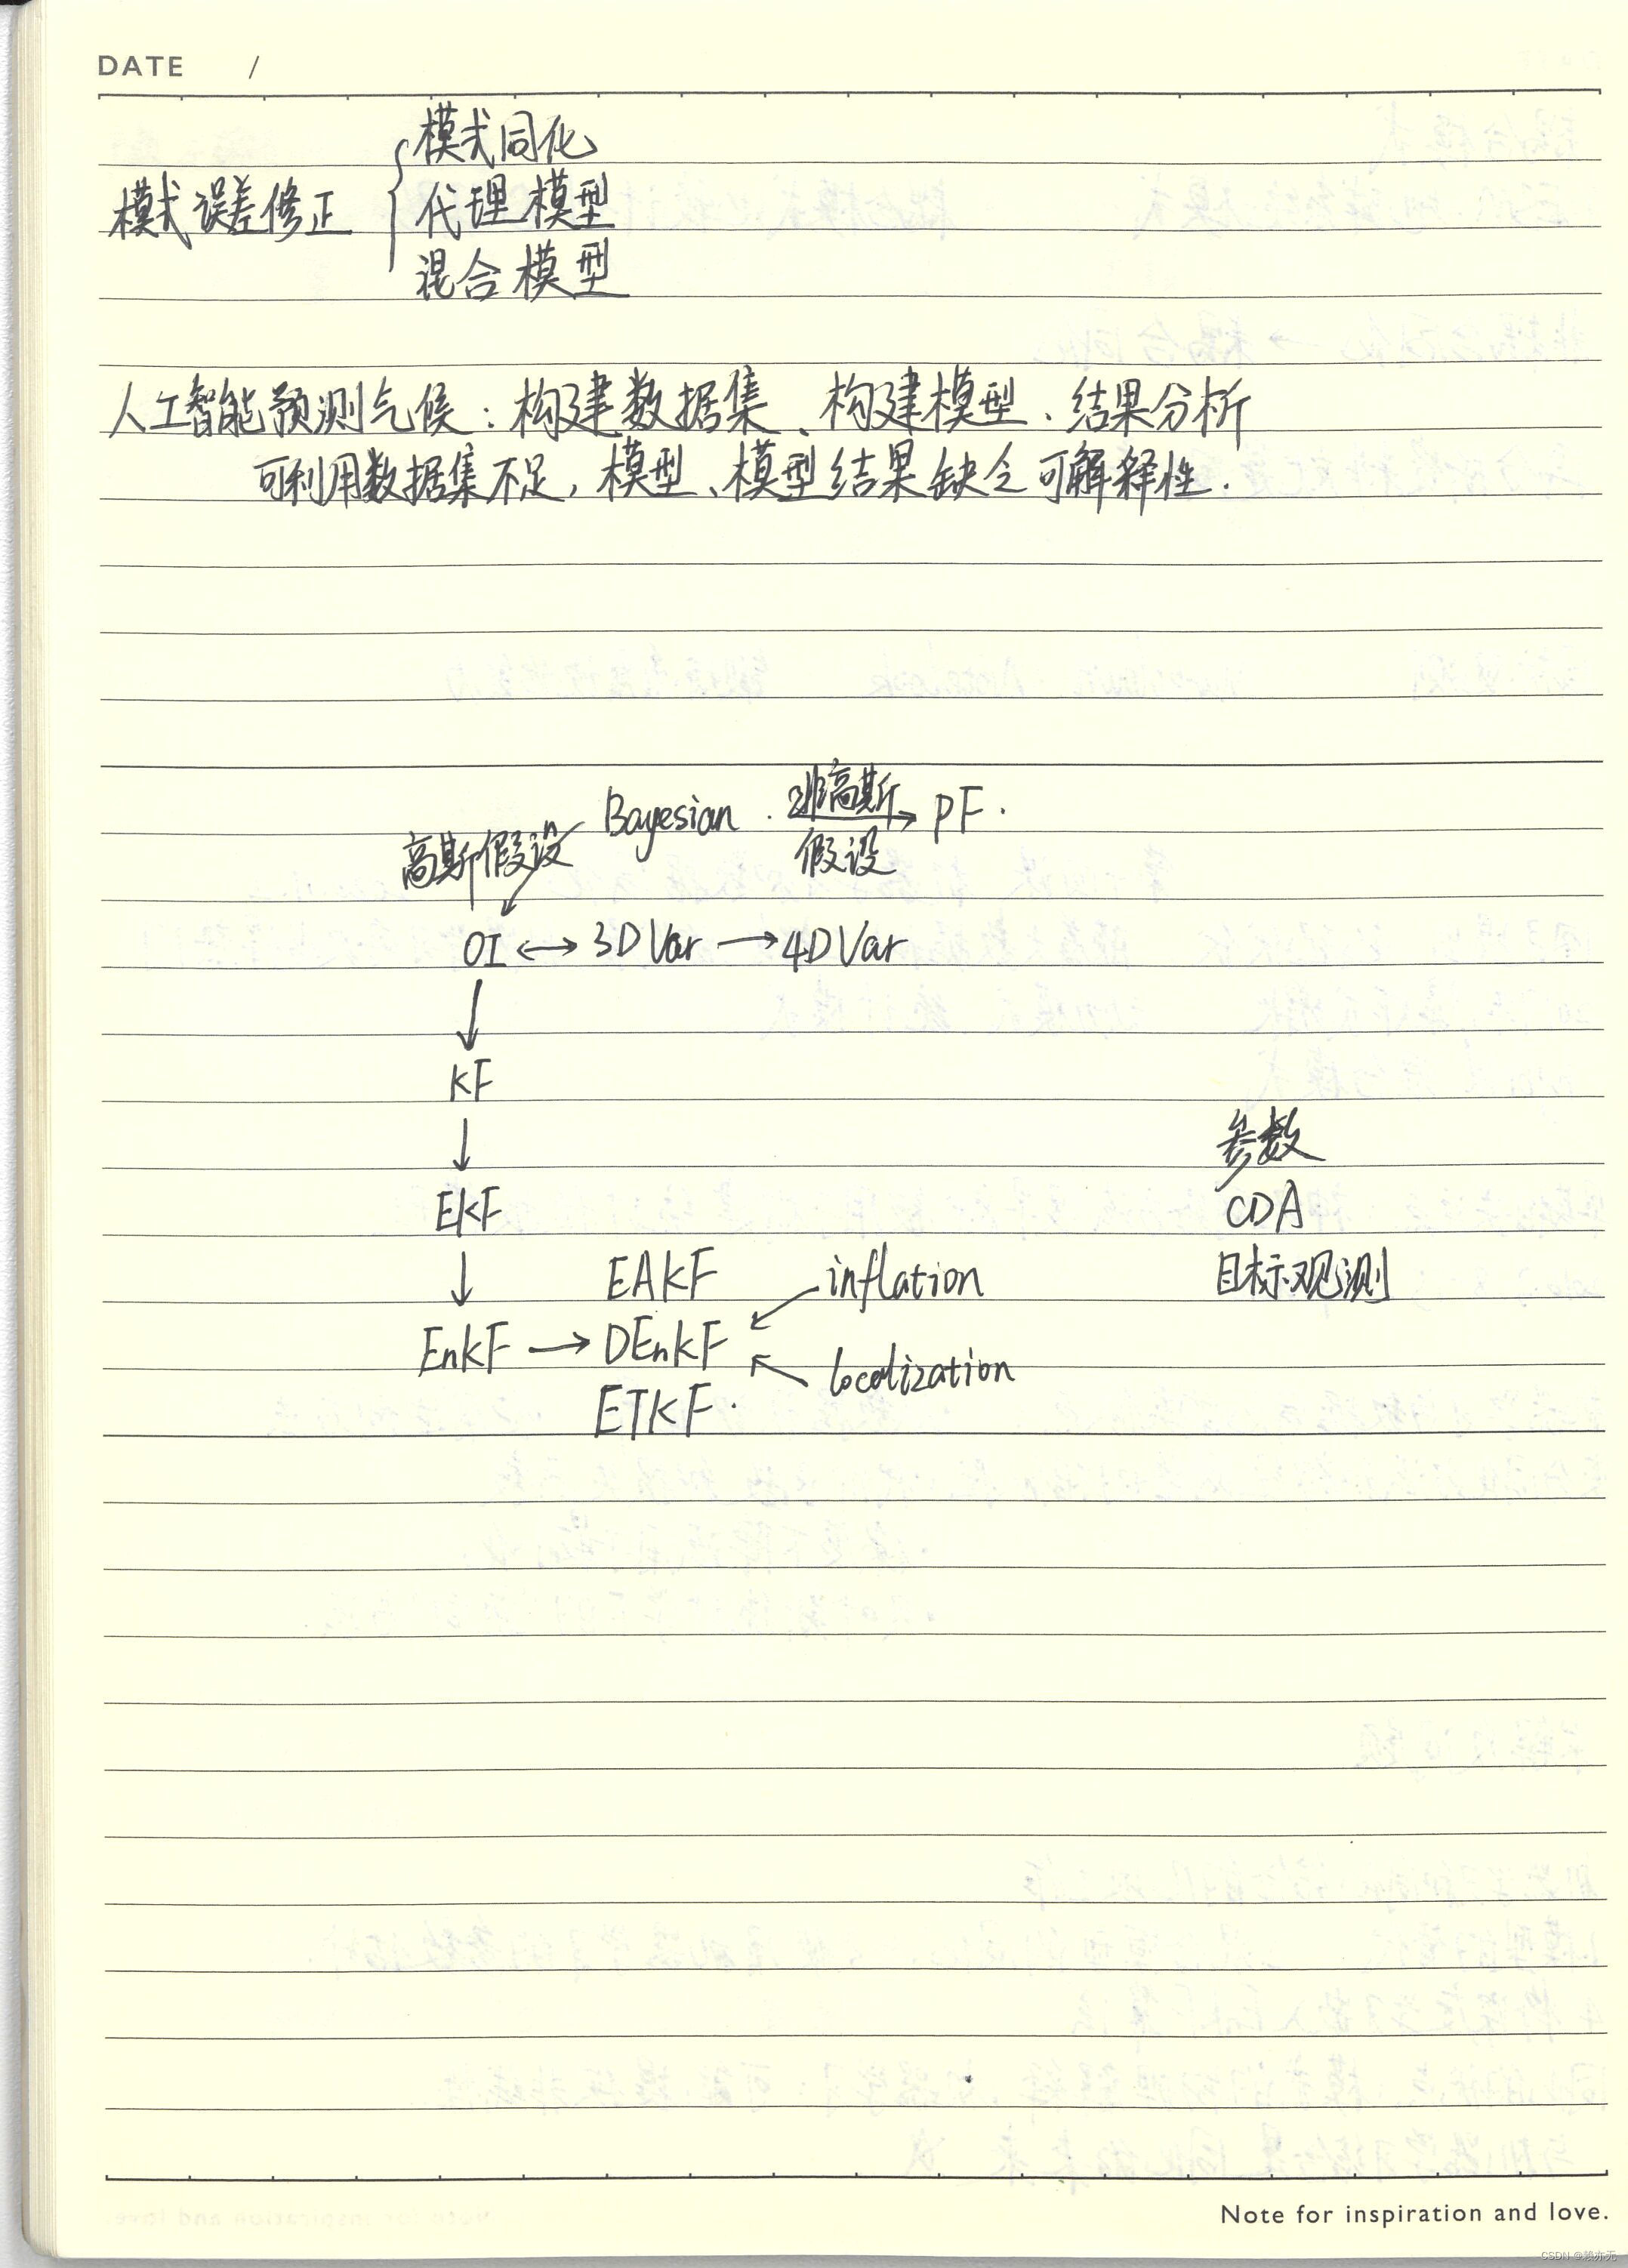 DATE /
模式同化
模式误差修正 { 代理模型
混合模型
人工智能预测气候：构建数据集、构建模型、结果分析
可利用数据集不足，模型、模型结果缺乏可解释性.
Bayesian. 非高斯 → PF.
高斯假设 假设
OI ↔ 3DVar → 4DVar
↓
KF
↓ 参数
EKF CDA
↓ EAKF inflation 目标观测
EnKF → DEnKF
localization
ETKF.
Note for inspiration and love.
CSDN @颖亦无